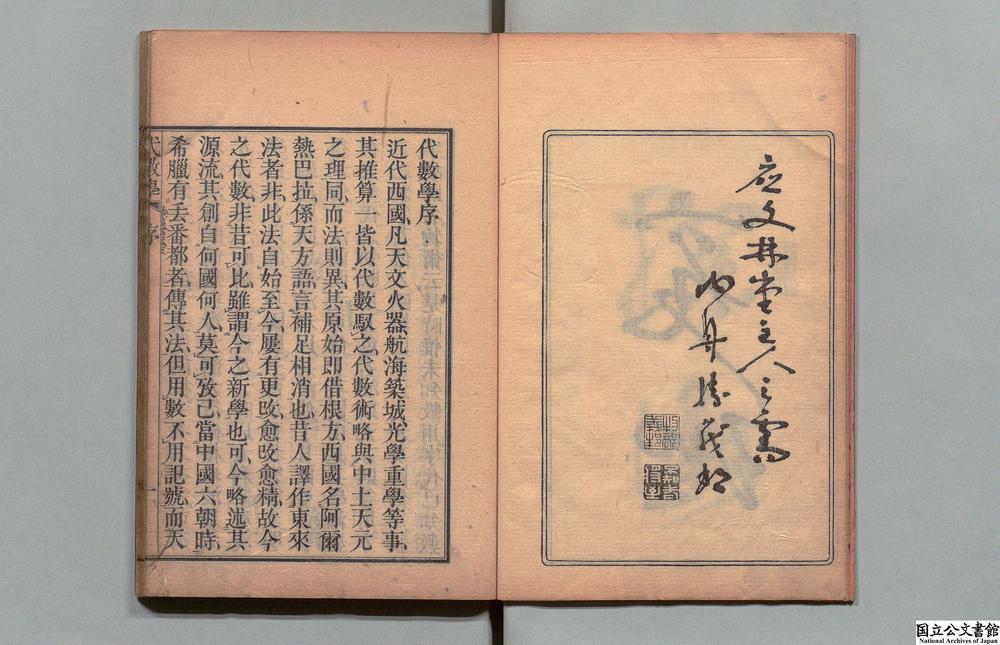 應文林堂主人之需
代數學序
近代西國凡天文火器航海築城光學重學等事
其推算一皆以代數馭之代數術略與中土天元
之理同而法則異其原始即借根方西國名阿爾
熱巴拉係天方語言補足相消也昔人譯作東來
法者非此法自始至今屢有更改愈改愈精故今
之代數非昔可比雖謂今之新學也可今略述其
源流其創自何國何人莫可攷已當中國六朝時
希臘有丟番都者傳其法但用數不用記號而天
代數學 序 一
国立公文書館
National Archives of Japan